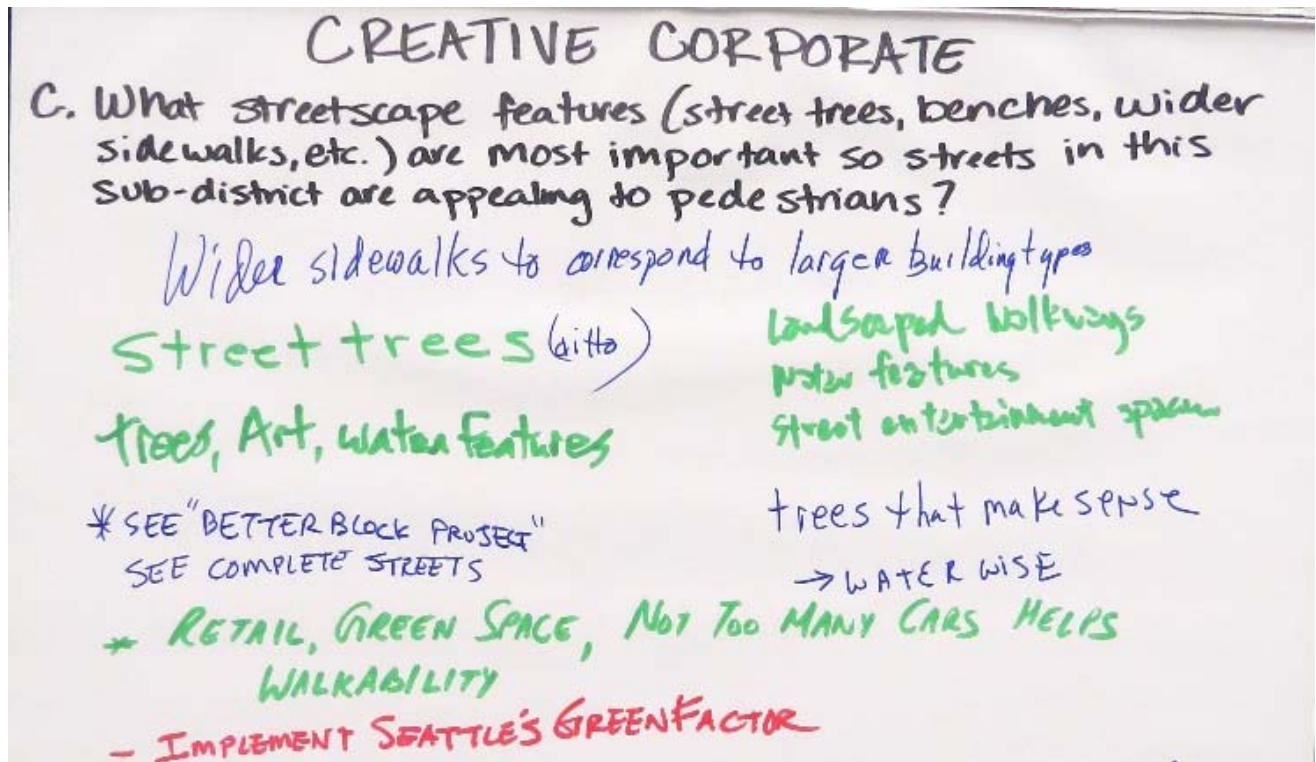 CREATIVE CORPORATE
C. What streetscape features (street trees, benches, wider
sidewalks, etc.) are most important so streets in this
sub-district are appealing to pedestrians?
Wider sidewalks to correspond to larger building types
Street trees (ditto)
trees, Art, water features
Landscaped walkways
water features
street entertainment spaces
* SEE "BETTER BLOCK PROJECT"
SEE COMPLETE STREETS
trees that make sense
→ WATER WISE
* RETAIL, GREEN SPACE, NOT TOO MANY CARS HELPS
WALKABILITY
- IMPLEMENT SEATTLE'S GREEN FACTOR